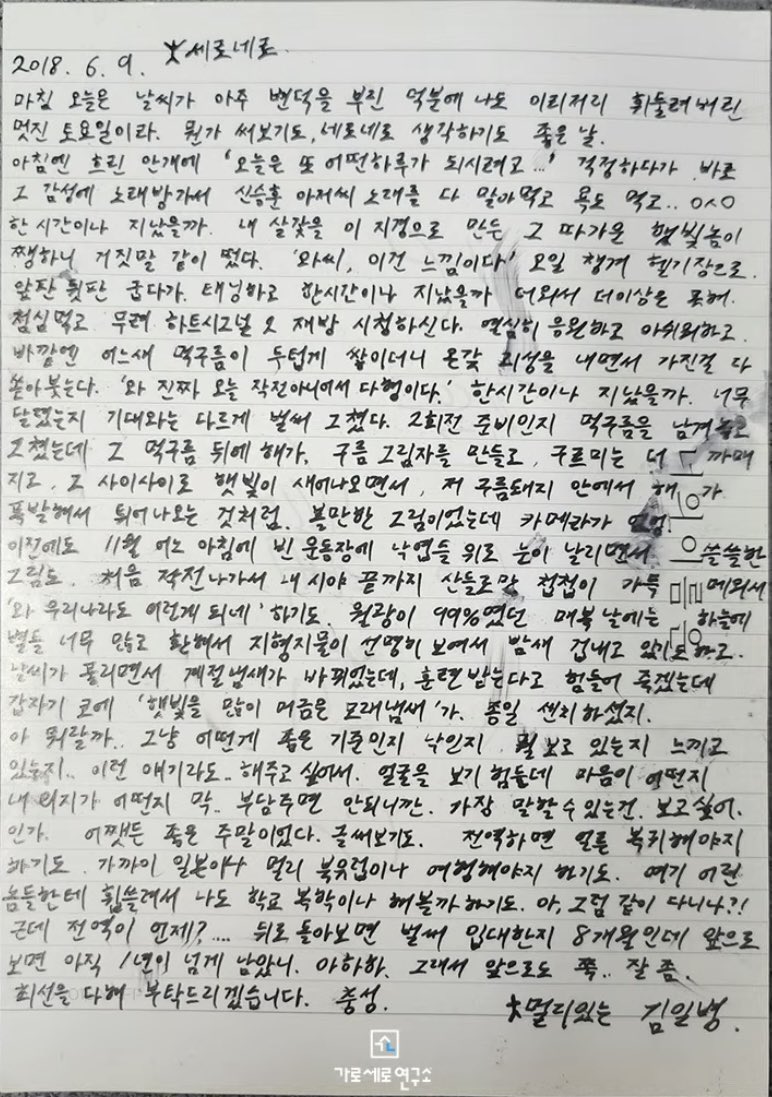 ★세로네로
2018. 6. 9.
마침 오늘은 날씨가 아주 변덕을 부린 덕분에 나도 이리저리 휘둘려버린
멋진 토요일이라. 뭔가 써보기도, 세로네로 생각하기도 좋은 날.
아침엔 흐린 안개에 '오늘은 또 어떤하루가 되시려고...' 걱정하다가 바로
그 감성에 노래방가서 신승훈 아저씨 노래를 다 말아먹고 욕도 먹고.. ㅇㅅㅇ
한 시간이나 지났을까. 내 살갗을 이 지경으로 만든 그 따가운 햇빛놈이
쨍하니 거짓말 같이 떴다. '와씨, 이건 느낌이다' 오일 챙겨 헬기장으로.
앞판 뒷판 굽다가. 태닝하고 한시간이나 지났을까 더워서 더이상은 못해.
점심먹고 무려 하트시그널 2 재방 시청하신다. 열심히 응원하고 아쉬워하고.
바깥엔 어느새 먹구름이 두텁게 쌓이더니 온갖 괴성을 내면서 가진걸 다
쏟아붓는다. '와 진짜 오늘 작전아니어서 다행이다.' 한시간이나 지났을까. 너무
달렸는지 기대와는 다르게 벌써 그쳤다. 2회전 준비인지 먹구름을 남겨놓고
그쳤는데 그 먹구름 뒤에 해가, 구름 그림자를 만들고, 구르미는 더 까매
지고, 그 사이사이로 햇빛이 새어나오면서, 저 구름돼지 안에서 해가
폭발해서 튀어나오는 것처럼. 볼만한 그림이었는데 카메라가 없엉
이전에도 11월 어느 아침에 빈 운동장에 낙엽들 위로 눈이 날리면서 쓸쓸한
그림도. 처음 작전나가서 내 시야 끝까지 산들로만 첩첩이 가득 메워서
'와 우리나라도 이런게 되네' 하기도. 월광이 99%였던 매복 날에는 하늘에
별들 너무 많고 환해서 지형지물이 선명히 보여서 밤새 겁내고 있기도하고.
날씨가 풀리면서 계절냄새가 바뀌었는데, 훈련받는다고 힘들어 죽겠는데
갑자기 코에 '햇빛을 많이 머금은 모래냄새'가. 종일 센치하셨지.
아 뭐랄까.. 그냥 어떻게 좋은 기준인지 낙인지 뭘 보고 있는지 느끼고
있는지.. 이런 얘기라도.. 해주고 싶어서. 얼굴을 보기 힘들데 마음이 어떤지
내 의지가 어떤지 막.. 부담주면 안되니깐. 가장 말할수있는건. 보고싶어.
인가. 어쨋든 좋은 주말이었다. 글써보기도. 전역하면 얼른 복귀해야지
하기도. 가까이 일본이나 멀리 북유럽이나 여행해야지 하기도. 여기 어린
놈들한테 휩쓸려서 나도 학교 복학이나 해볼까하기도. 아, 그럼 같이 다니나?!
근데 전역이 언제?.... 뒤로 돌아보면 벌써 입대한지 8개월인데 앞으로
보면 아직 1년이 넘게 남았니. 아하하. 그래서 앞으로도 쭉.. 잘 좀.
최선을 다해 부탁드리겠습니다. 충성.
★멀리있는 김일병.
가로세로연구소